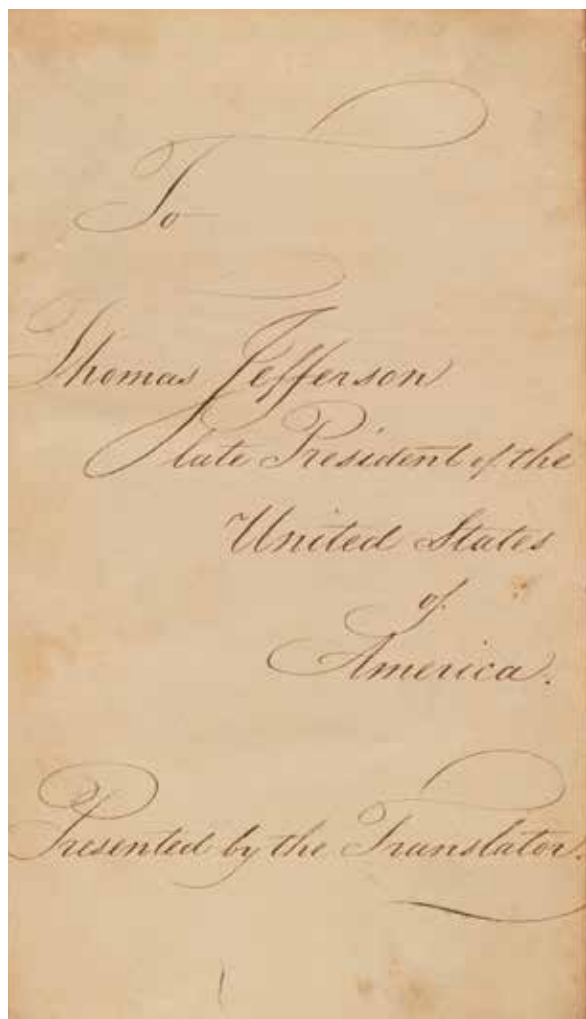 To
Thomas Jefferson
late President of the
United States
of
America.
Presented by the Translator.